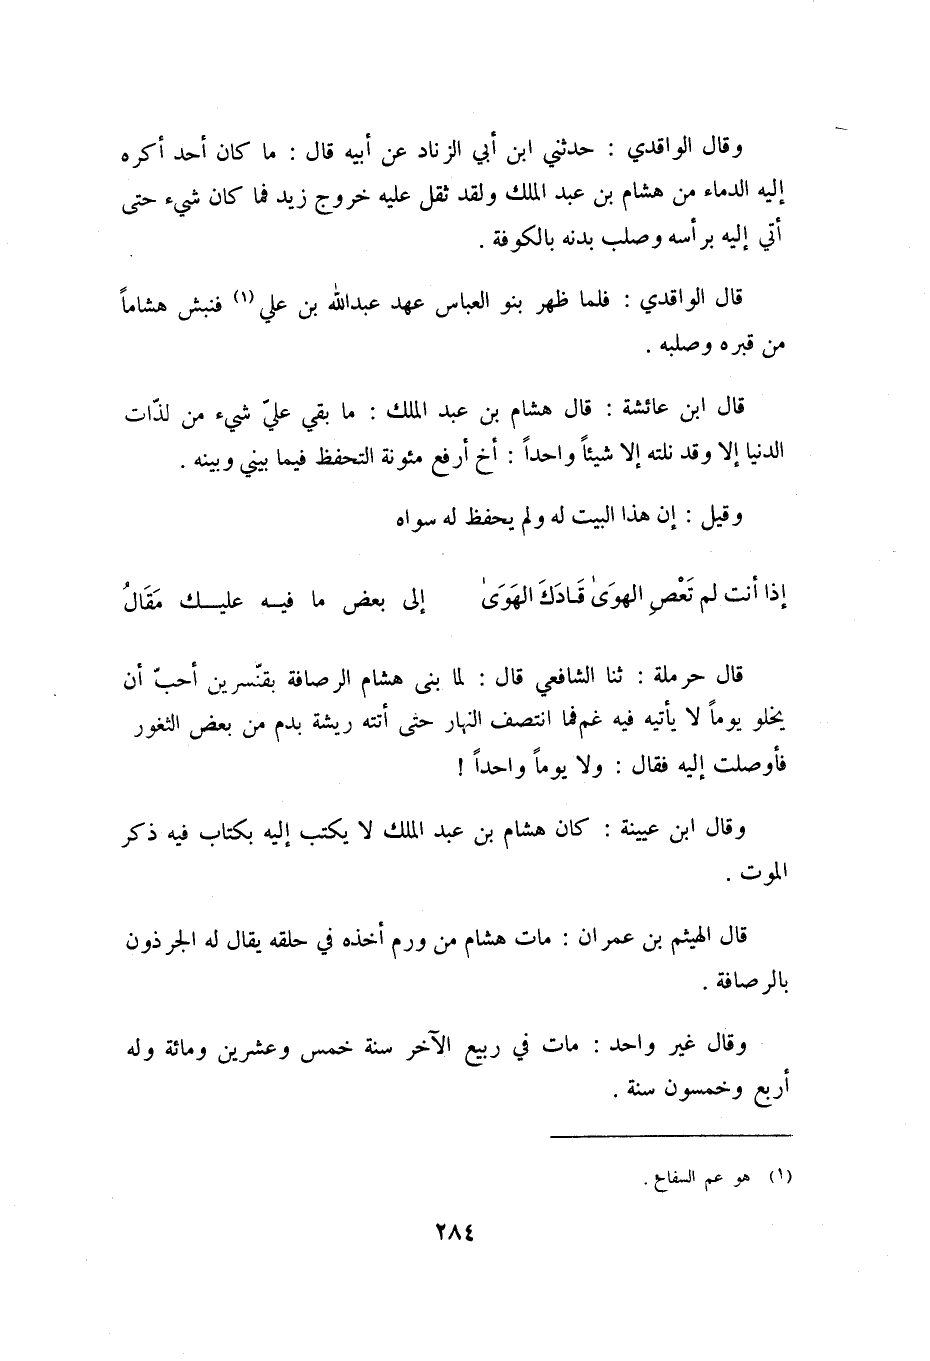 وقال الواقدي : حدثني ابن أبي الزناد عن أبيه قال : ما كان أحد أكره
إليه الدماء من هشام بن عبد الملك ولقد ثقل عليه خروج زيد فما كان شيء حتى
أتي إليه برأسه وصلب بدنه بالكوفة .
قال الواقدي : فلما ظهر بنو العباس عهد عبدالله بن علي (١) فنبش هشاماً
من قبره وصلبه .
قال ابن عائشة : قال هشام بن عبد الملك : ما بقي عليّ شيء من لذّات
الدنيا إلا وقد نلته إلا شيئاً واحداً : أخ أرفع مئونة التحفظ فيما بيني وبينه .
وقيل : إن هذا البيت له ولم يحفظ له سواه
إذا أنت لم تَعْصِ الهوَىٰ قَادَكَ الهَوَىٰ إلى بعض ما فيـه عليـك مَقَالُ
قال حرملة : ثنا الشافعي قال : لما بنى هشام الرصافة بقنّسرين أحبّ أن
يخلو يوماً لا يأتيه فيه غم فما انتصف النهار حتى أتته ريشة بدم من بعض الثغور
فأوصلت إليه فقال : ولا يوماً واحداً !
وقال ابن عيينة : كان هشام بن عبد الملك لا يكتب إليه بكتاب فيه ذكر
الموت .
قال الهيثم بن عمران : مات هشام من ورم أخذه في حلقه يقال له الجرذون
بالرصافة .
وقال غير واحد : مات في ربيع الآخر سنة خمس وعشرين ومائة وله
أربع وخمسون سنة .
(١) هو عم السفاح .
٢٨٤